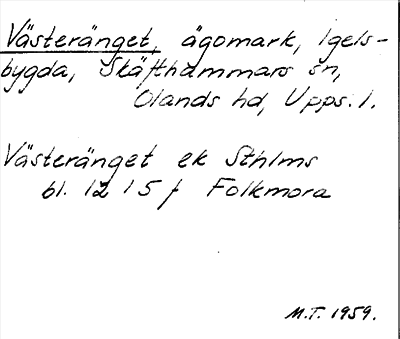 Västeränget, ägomark, Igels-
bygda, Skäfthammars sn,
Olands hd, Upps. l.
Västeränget ek Sthlms
bl. 12 I 5 f Folkmora
M.T. 1959.